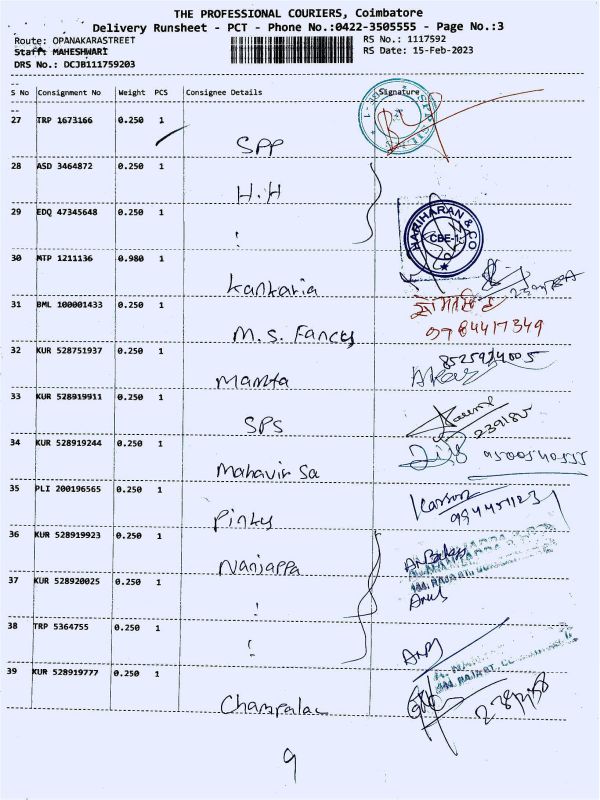 THE PROFESSIONAL COURIERS, Coimbatore
Delivery Runsheet - PCT - Phone No.:0422-3505555 - Page No.:3
Route: OPANAKARASTREET
RS No.: 1117592
Staff: MAHESHWARI
RS Date: 15-Feb-2023
DRS No.: DCJB111759203
S No Consignment No Weight PCS Consignee Details Signature
27 TRP 1673166 0.250 1
SPP
28 ASD 3464872 0.250 1
H.H
29 EDQ 47345648 0.250 1
!
HARIHARAN & CO
CBE-1
30 MTP 1211136 0.980 1
Kankaria
31 BML 100001433 0.250 1
M.S. Fancy
9784417349
32 KUR 528751937 0.250 1
Mamta
33 KUR 528919911 0.250 1
SPS
34 KUR 528919244 0.250 1
Mahavir Sa
35 PLI 200196565 0.250 1
Pinky
36 KUR 528919923 0.250 1
Nanjappa
37 KUR 528920025 0.250 1
!
38 TRP 5364755 0.250 1
!
39 KUR 528919777 0.250 1
Champalal
9